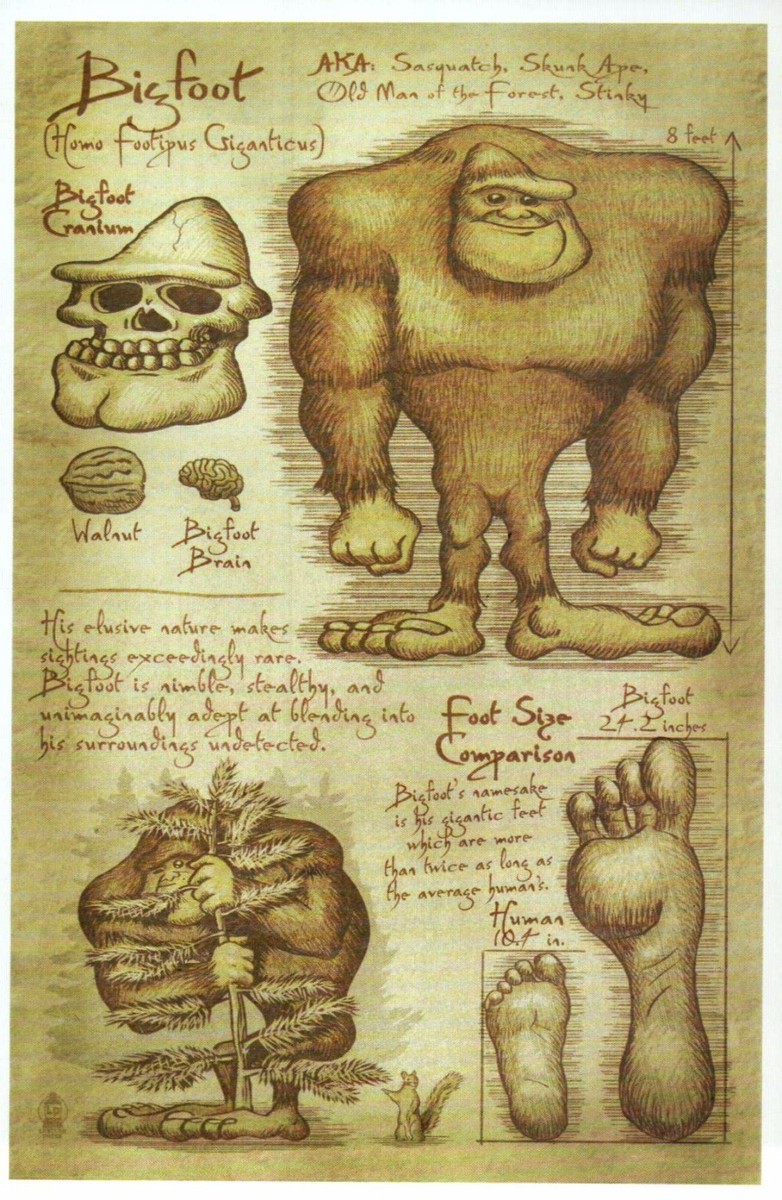 Bigfoot
(Homo Footipus Giganticus)
AKA: Sasquatch, Skunk Ape,
Old Man of the Forest, Stinky
8 feet
Bigfoot
Cranium
Walnut
Bigfoot
Brain
His elusive nature makes
sightings exceedingly rare.
Bigfoot is nimble, stealthy, and
unimaginably adept at blending into
his surroundings undetected.
Foot Size
Comparison
Bigfoot
24.2 inches
Bigfoot's namesake
is his gigantic feet
which are more
than twice as long as
the average human's.
Human
10.4 in.